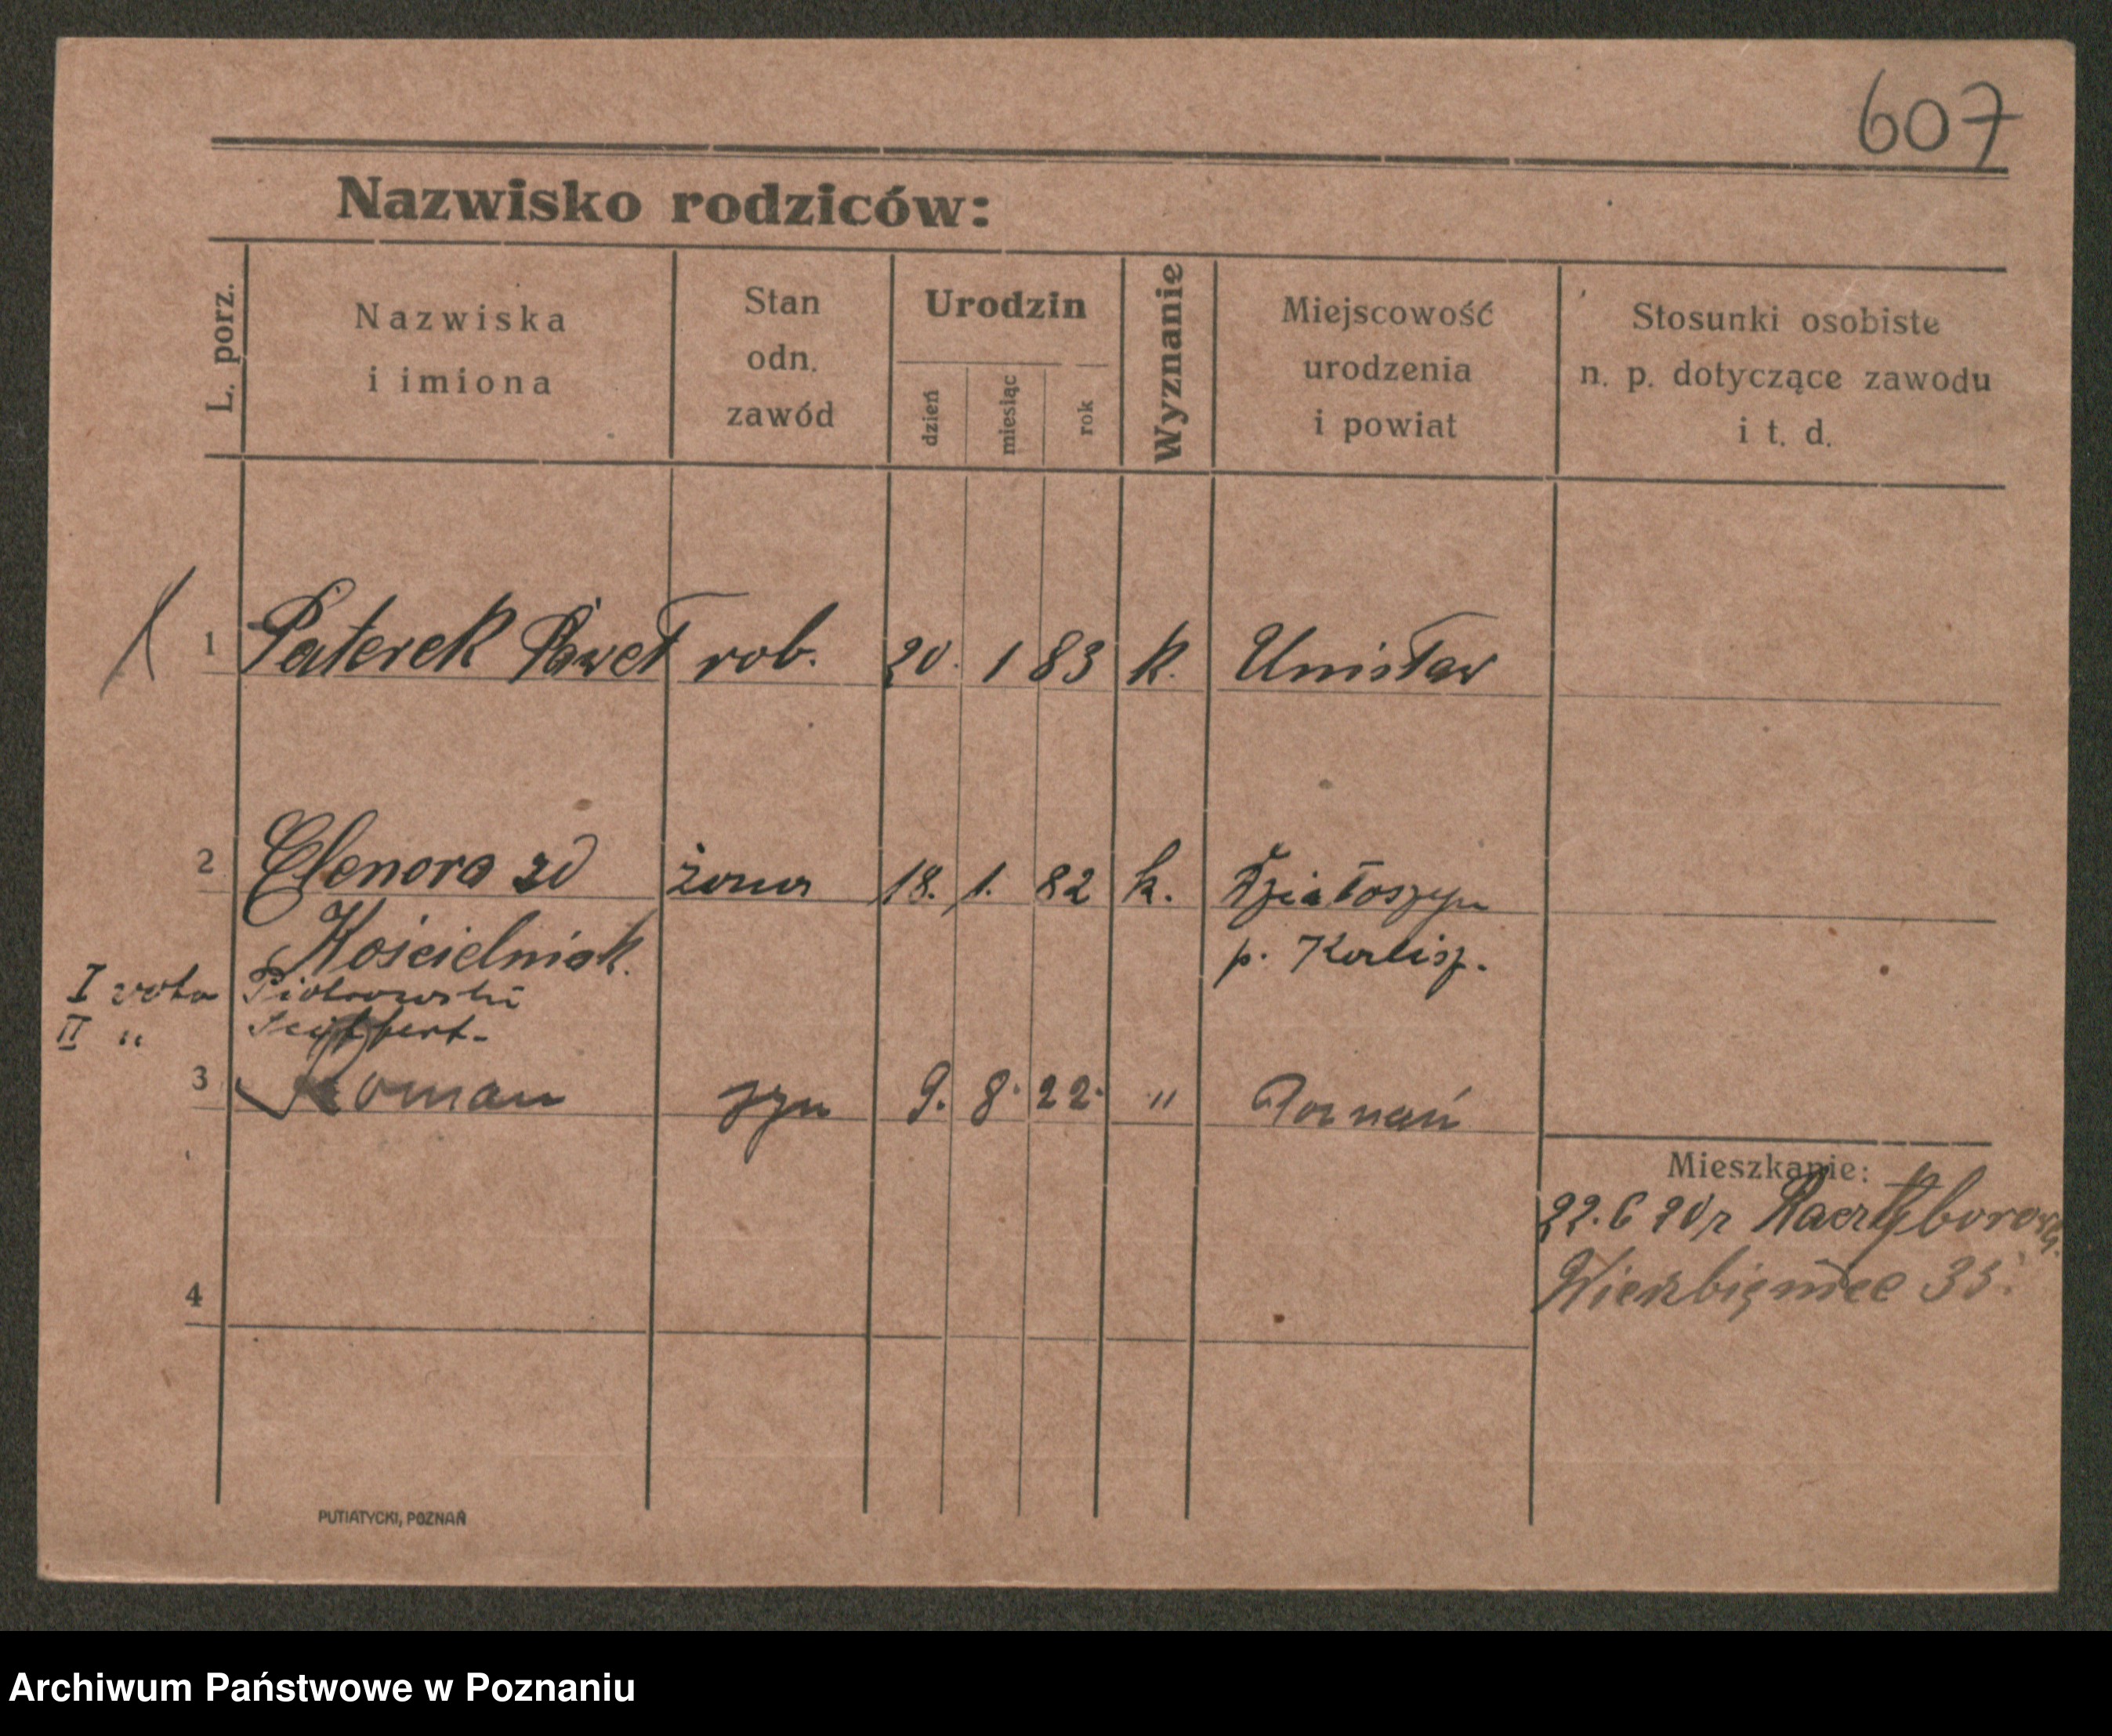 607
Nazwisko rodziców:
L. porz.
Nazwiska
i imiona
Stan
odn.
zawód
Urodzin
dzień
miesiąc
rok
Wyznanie
Miejscowość
urodzenia
i powiat
Stosunki osobiste
n. p. dotyczące zawodu
i t. d.
1 Paterek Paweł rob. 20. 1 83 k. Unisław
2 Elenora zd żona 18. 1. 82 k. Działoszyn
Kościelniak. p. Kalisz.
I voto Piotrowski
II "
3 Roman syn 9. 8. 22. " Poznań
Mieszkanie:
22. 6 20 r
33.
4
PUTIATYCKI, POZNAŃ
Archiwum Państwowe w Poznaniu